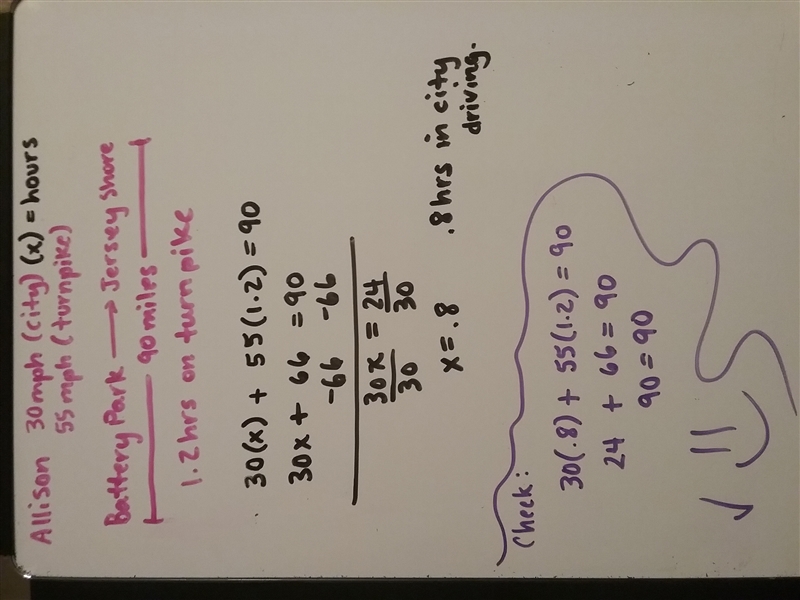 Allison 30mph (city) (x) = hours
55 mph (turnpike)
Battery Park → Jersey Shore
90 miles
1.2 hrs on turnpike
30(x) + 55(1.2) = 90
30x + 66 = 90
-66 -66
30x = 24
30 30
x = .8 .8 hrs in city
driving.
Check:
30(.8) + 55(1.2) = 90
24 + 66 = 90
90 = 90
✓